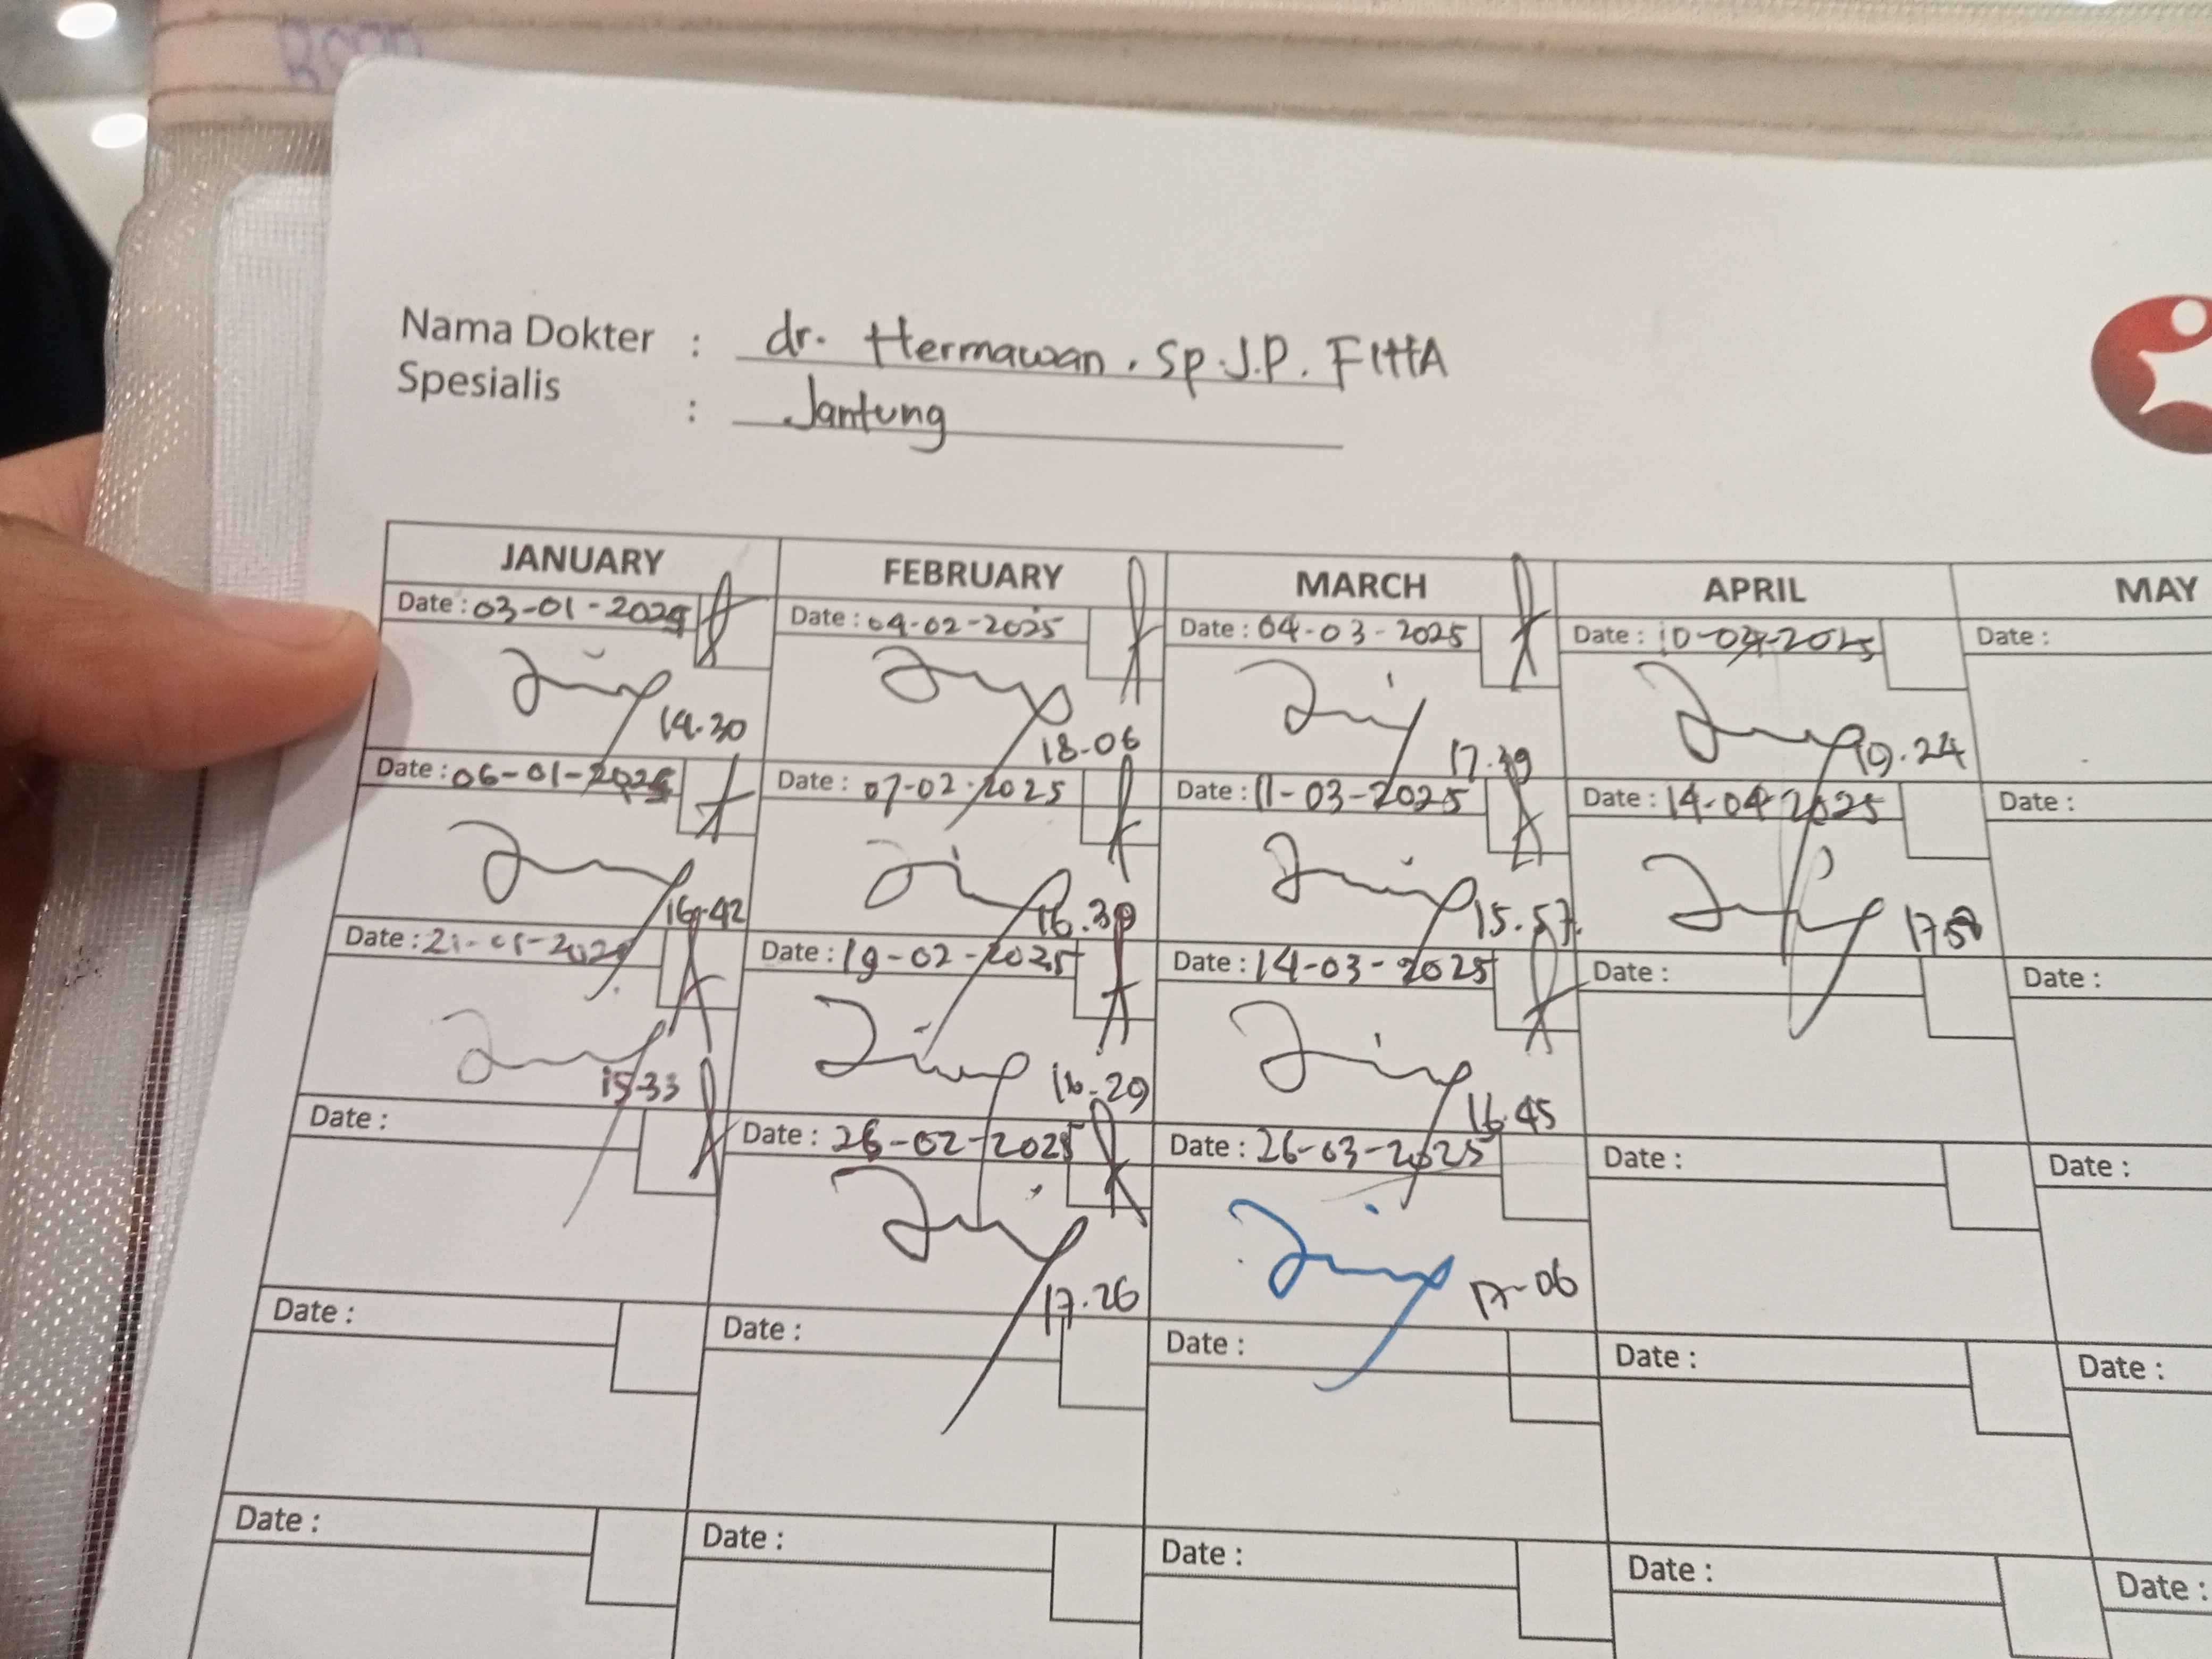 Nama Dokter : dr. Hermawan. Sp.J.P. FIHA
Spesialis : Jantung
JANUARY FEBRUARY MARCH APRIL MAY
Date : 03-01-2025 Date : 04-02-2025 Date : 04-03-2025 Date : 10-04-2025 Date :
14.30 18.06 17.39 19.24
Date : 06-01-2025 Date : 07-02-2025 Date : 11-03-2025 Date : 14-04-2025 Date :
16.42 16.39 15.57.
Date : 21-01-2025 Date : 19-02-2025 Date : 14-03-2025 Date : Date :
15.33 16.29 16.45
Date : Date : 26-02-2025 Date : 26-03-2025 Date : Date :
17.26 17-06
Date : Date : Date : Date : Date :
Date : Date : Date : Date : Date :